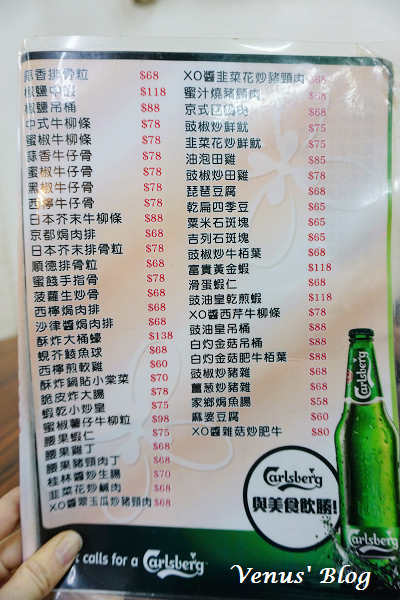 蒜香排骨粒 $68
椒鹽中蝦 $118
椒鹽吊桶 $88
中式牛柳條 $78
蜜椒牛柳條 $78
蒜香牛仔骨 $78
蜜椒牛仔骨 $78
黑椒牛仔骨 $78
西檸牛仔骨 $78
日本芥末牛柳條 $88
京都焗肉排 $68
日本芥末排骨粒 $78
順德排骨粒 $68
蜜餞手指骨 $78
菠蘿生炒骨 $68
西檸焗肉排 $68
沙律醬焗肉排 $68
酥炸大桶蠔 $138
蜆芥鯪魚球 $68
西檸煎軟雞 $60
酥炸鍋貼小棠菜 $70
脆皮炸大腸 $78
蝦乾小炒皇 $75
蜜椒薯仔牛柳粒 $98
腰果蝦仁 $75
腰果雞丁 $68
腰果豬頸肉丁 $68
桂林醬炒生腸 $70
韭菜花炒鹹肉 $68
XO醬翠玉瓜炒豬頸肉 $68
XO醬韭菜花炒豬頸肉 $68
蜜汁燒豬頸肉 $68
京式回鍋肉 $68
豉椒炒鮮魷 $75
韭菜花炒鮮魷 $75
油泡田雞 $85
豉椒炒田雞 $78
琵琶豆腐 $68
乾扁四季豆 $65
粟米石斑塊 $65
吉列石斑塊 $65
豉椒炒牛栢葉 $68
富貴黃金蝦 $118
滑蛋蝦仁 $68
豉油皇乾煎蝦 $118
XO醬西芹牛柳條 $78
豉油皇吊桶 $88
白灼金菇吊桶 $88
白灼金菇肥牛栢葉 $88
豉椒炒豬雜 $68
薑葱炒豬雜 $68
家鄉焗魚腸 $58
麻婆豆腐 $60
XO醬雜菇炒肥牛 $80
Carlsberg
Carlsberg
與美食飲勝!
calls for a Carlsberg
Venus' Blog